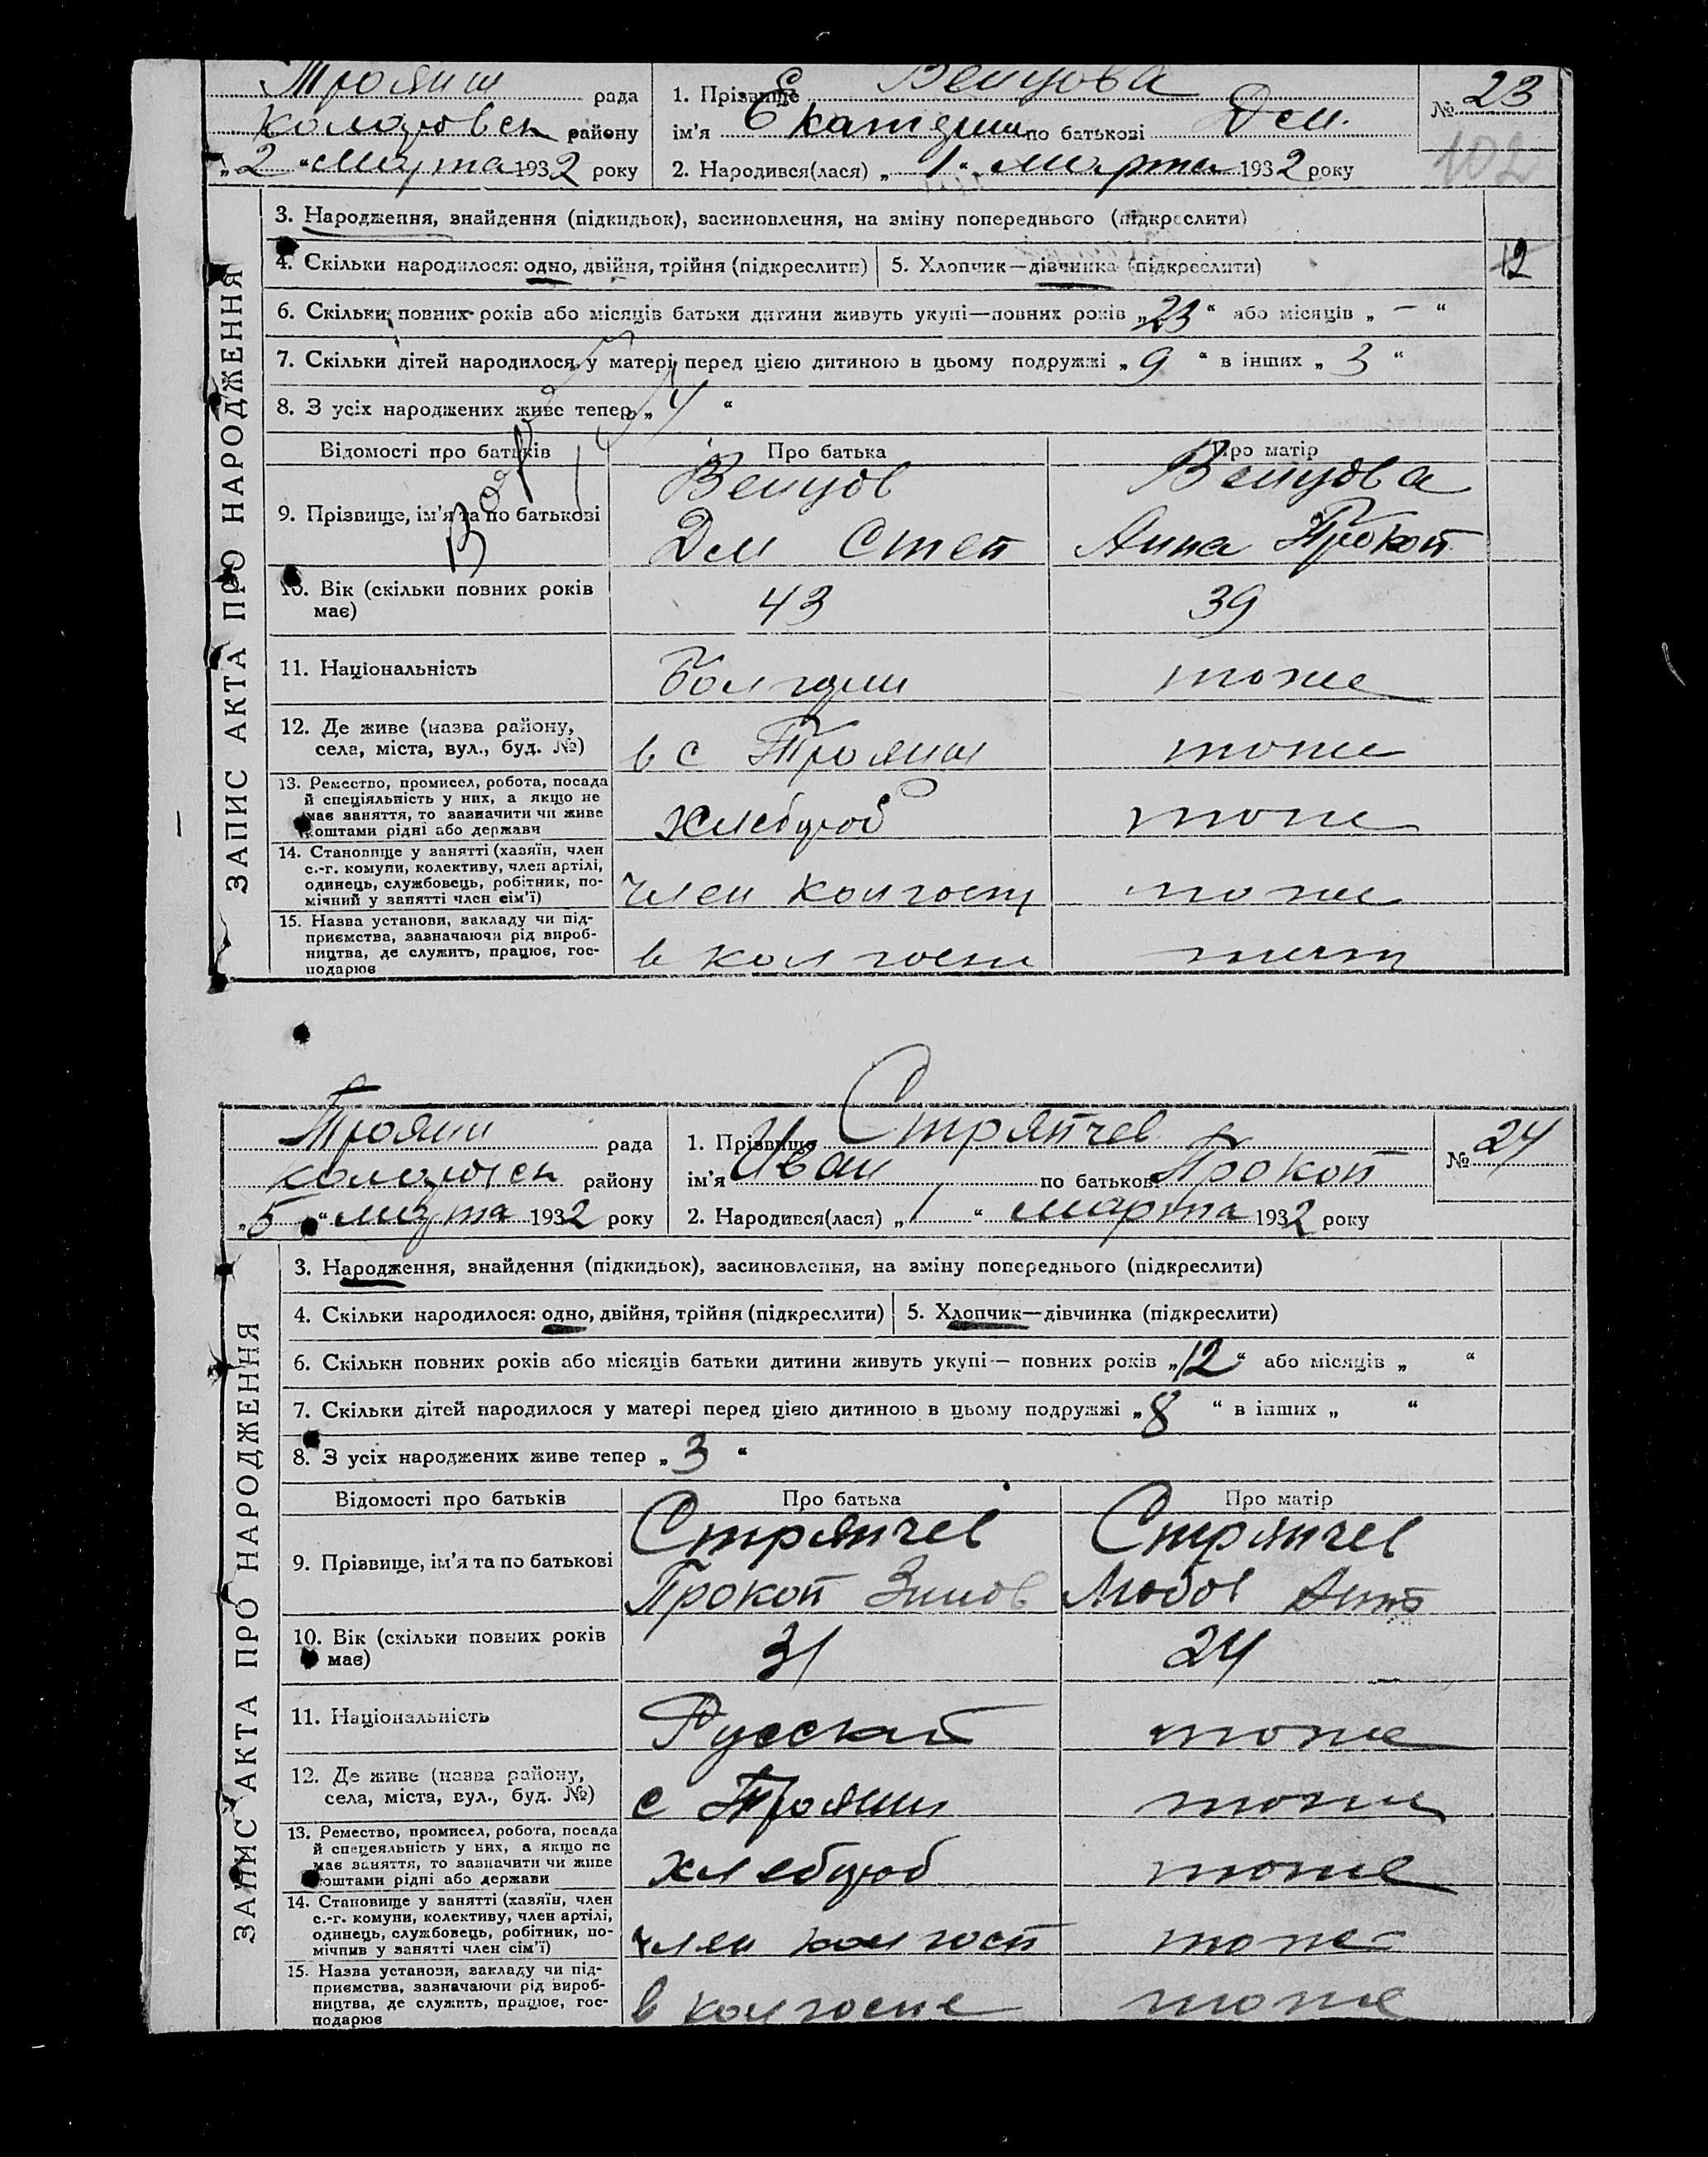 Троян рада
район
„2“ марта 1932 року
1. Прізвище
ім'я Екатерин по батькові Дем.
2. Народився(лася) „1“ марта 1932 року
№ 23
102
ЗАПИС АКТА ПРО НАРОДЖЕННЯ
3. Народження, знайдення (підкидьок), засиновлення, на зміну попереднього (підкреслити)
4. Скільки народилося: одно, двійня, трійня (підкреслити) 5. Хлопчик—дівчинка (підкреслити)
12
6. Скільки повних років або місяців батьки дитини живуть укупі—повних років „23“ або місяців „–“
7. Скільки дітей народилося у матері перед цією дитиною в цьому подружжі „9“ в інших „3“
8. З усіх народжених живе тепер „4“
Відомості про батьків Про батька Про матір
9. Прізвище, ім'я та по батькові
Дем Степ Анна Прокоп
10. Вік (скільки повних років має) 43 39
11. Національність Болгарин тоже
12. Де живе (назва району, села, міста, вул., буд. №) в с Троян тоже
13. Ремество, промисел, робота, посада
й спеціяльність у них, а якщо не
має заняття, то зазначити чи живе
коштами рідні або держави
хлебороб тоже
14. Становище у занятті (хазяїн, член
с.-г. комуни, колективу, член артілі,
одинець, службовець, робітник, по-
мічний у занятті член сім'ї)
член колгосп тоже
15. Назва установи, закладу чи під-
приємства, зазначаючи рід вироб-
ництва, де служить, працює, гос-
подарює
в колгоспе
Троян рада
район
„5“ марта 1932 року
1. Прізвище Стряпчев
ім'я Иван по батькові Прокоп
2. Народився(лася) „1“ марта 1932 року
№ 24
ЗАПИС АКТА ПРО НАРОДЖЕННЯ
3. Народження, знайдення (підкидьок), засиновлення, на зміну попереднього (підкреслити)
4. Скільки народилося: одно, двійня, трійня (підкреслити) 5. Хлопчик—дівчинка (підкреслити)
6. Скільки повних років або місяців батьки дитини живуть укупі— повних років „12“ або місяців „ “
7. Скільки дітей народилося у матері перед цією дитиною в цьому подружжі „8“ в інших „ “
8. З усіх народжених живе тепер „3“
Відомості про батьків Про батька Про матір
9. Прізвище, ім'я та по батькові
Стряпчев Стряпчев
Прокоп Зинов Любов Анто
10. Вік (скільки повних років має) 31 24
11. Національність Русский тоже
12. Де живе (назва району, села, міста, вул., буд. №) с Троян тоже
13. Ремество, промисел, робота, посада
й спецеяльність у них, а якщо не
має заняття, то зазначити чи живе
коштами рідні або держави
хлебороб тоже
14. Становище у занятті (хазяїн, член
с.-г. комуни, колективу, член артілі,
одинець, службовець, робітник, по-
мічнив у занятті член сім'ї)
член колгосп тоже
15. Назва установи, закладу чи під-
приємства, зазначаючи рід вироб-
ництва, де служить, працює, гос-
подарює
в колгоспе тоже